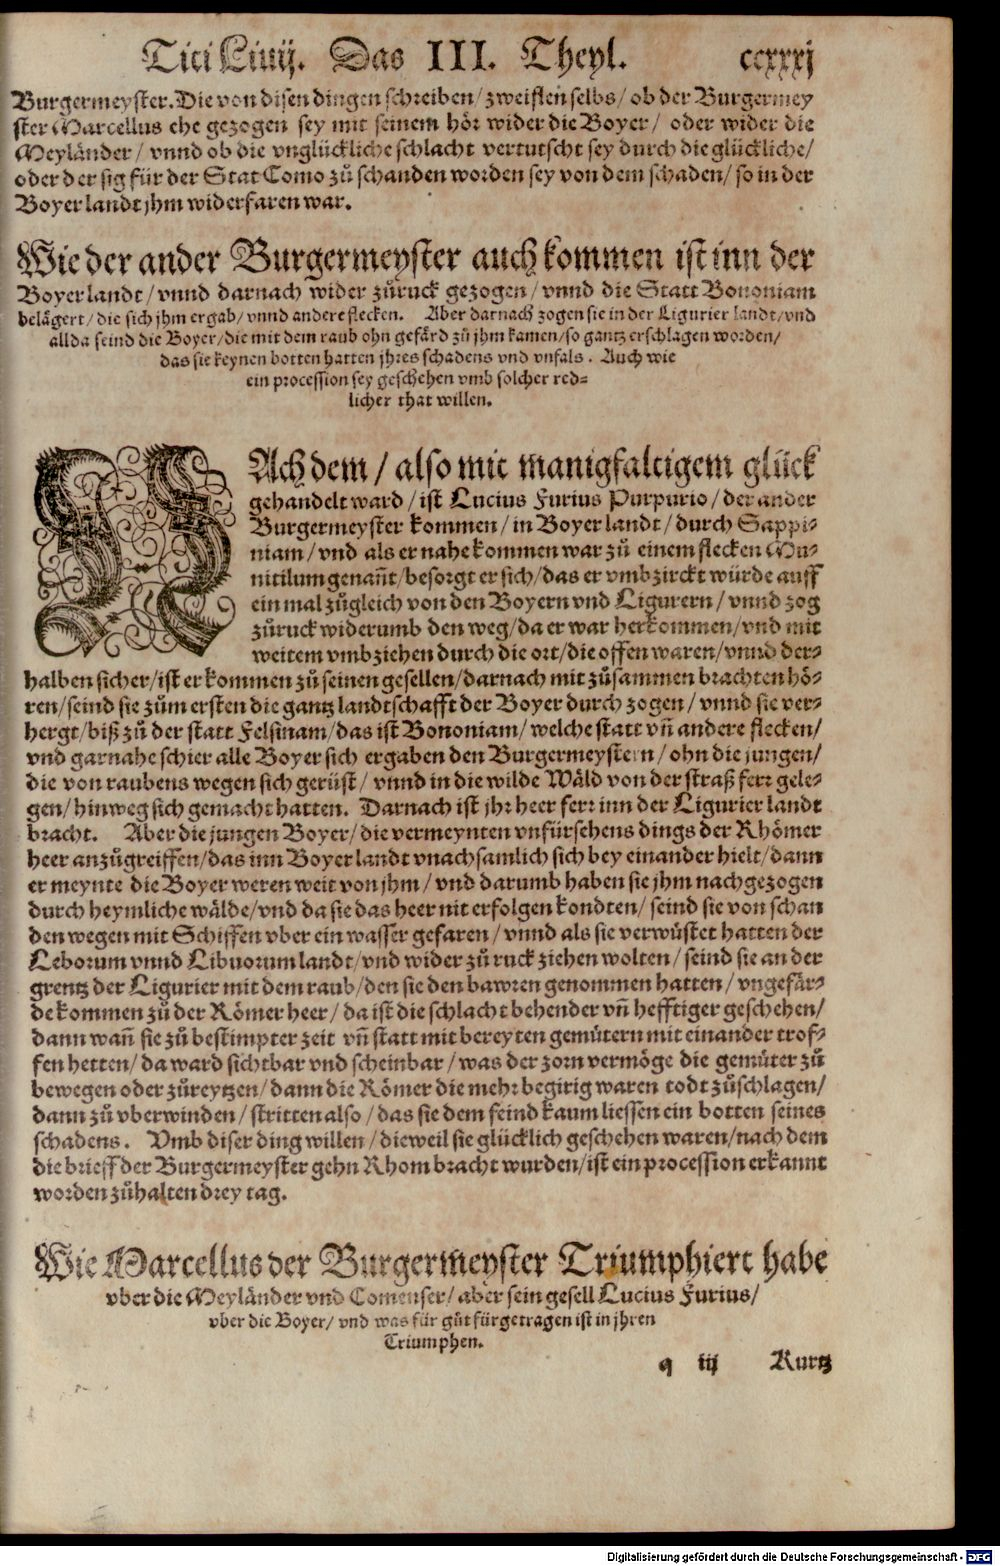 Titi Liuij. Das III. Theyl. ccxxxj
Burgermeyster. Die von disen dingen schreiben / zweiflen selbs / ob der Burgermey
ster Marcellus ehe gezogen sey mit seinem hör wider die Boyer / oder wider die
Meyländer / vnnd ob die vnglückliche schlacht vertutscht sey durch die glückliche /
oder der sig für der Stat Como zů schanden worden sey von dem schaden / so in der
Boyer landt jhm widerfaren war.
Wie der ander Burgermeyster auch kommen ist inn der
Boyer landt / vnnd darnach wider zůruck gezogen / vnnd die Statt Bononiam
belägert / die sich jhm ergab / vnnd andere flecken. Aber darnach zogen sie in der Ligurier landt / vnd
allda seind die Boyer / die mit dem raub ohn gefärd zů jhm kamen / so gantz erschlagen worden /
das sie keynen botten hatten jhres schadens vnd vnfals. Auch wie
ein procession sey geschehen vmb solcher red-
licher that willen.
NAch dem / also mit manigfaltigem glück
gehandelt ward / ist Lucius Furius Purpurio / der ander
Burgermeyster kommen / in Boyer landt / durch Sappi-
niam / vnd als er nahe kommen war zů einem flecken Mu-
nitilum genañt / besorgt er sich / das er vmbzirckt würde auff
ein mal zůgleich von den Boyern vnd Ligurern / vnnd zog
zůruck widerumb den weg / da er war herkommen / vnd mit
weitem vmbziehen durch die ort / die offen waren / vnnd der-
halben sicher / ist er kommen zů seinen gesellen / darnach mit zůsammen brachten hö-
ren / seind sie zům ersten die gantz landtschafft der Boyer durch zogen / vnnd sie ver-
hergt / biß zů der statt Felsinam / das ist Bononiam / welche statt vñ andere flecken /
vnd garnahe schier alle Boyer sich ergaben den Burgermeystern / ohn die jungen /
die von raubens wegen sich gerüst / vnnd in die wilde Wäld von der straß ferr gele-
gen / hinweg sich gemacht hatten. Darnach ist jhr heer ferr inn der Ligurier landt
bracht. Aber die jungen Boyer / die vermeynten vnfürsehens dings der Rhömer
heer anzůgreiffen / das inn Boyer landt vnachsamlich sich bey einander hielt / dann
er meynte die Boyer weren weit von jhm / vnd darumb haben sie jhm nachgezogen
durch heymliche wälde / vnd da sie das heer nit erfolgen kondten / seind sie von schan
den wegen mit Schiffen vber ein wasser gefaren / vnnd als sie verwüstet hatten der
Leborum vnnd Libuorum landt / vnd wider zů ruck ziehen wolten / seind sie an der
grentz der Ligurier mit dem raub / den sie den bawren genommen hatten / vngefär-
de kommen zů der Römer heer / da ist die schlacht behender vñ hefftiger geschehen /
dann wañ sie zů bestimpter zeit vñ statt mit bereyten gemütern mit einander trof-
fen hetten / da ward sichtbar vnd scheinbar / was der zorn vermöge die gemüter zů
bewegen oder zůreytzen / dann die Römer die mehr begirig waren todt zůschlagen /
dann zů vberwinden / stritten also / das sie dem feind kaum liessen ein botten seines
schadens. Vmb diser ding willen / dieweil sie glücklich geschehen waren / nach dem
die brieff der Burgermeyster gehn Rhom bracht wurden / ist ein procession erkannt
worden zůhalten drey tag.
Wie Marcellus der Burgermeyster Triumphiert habe
vber die Meyländer vnd Comenser / aber sein gesell Lucius Furius /
vber die Boyer / vnd was für gůt fürgetragen ist in jhren
Triumphen.
q iij Kurtz
Digitalisierung gefördert durch die Deutsche Forschungsgemeinschaft - DFG